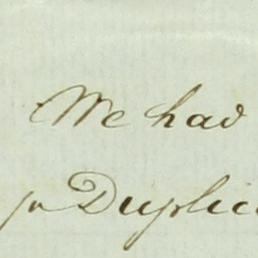 We had
pr Duplic